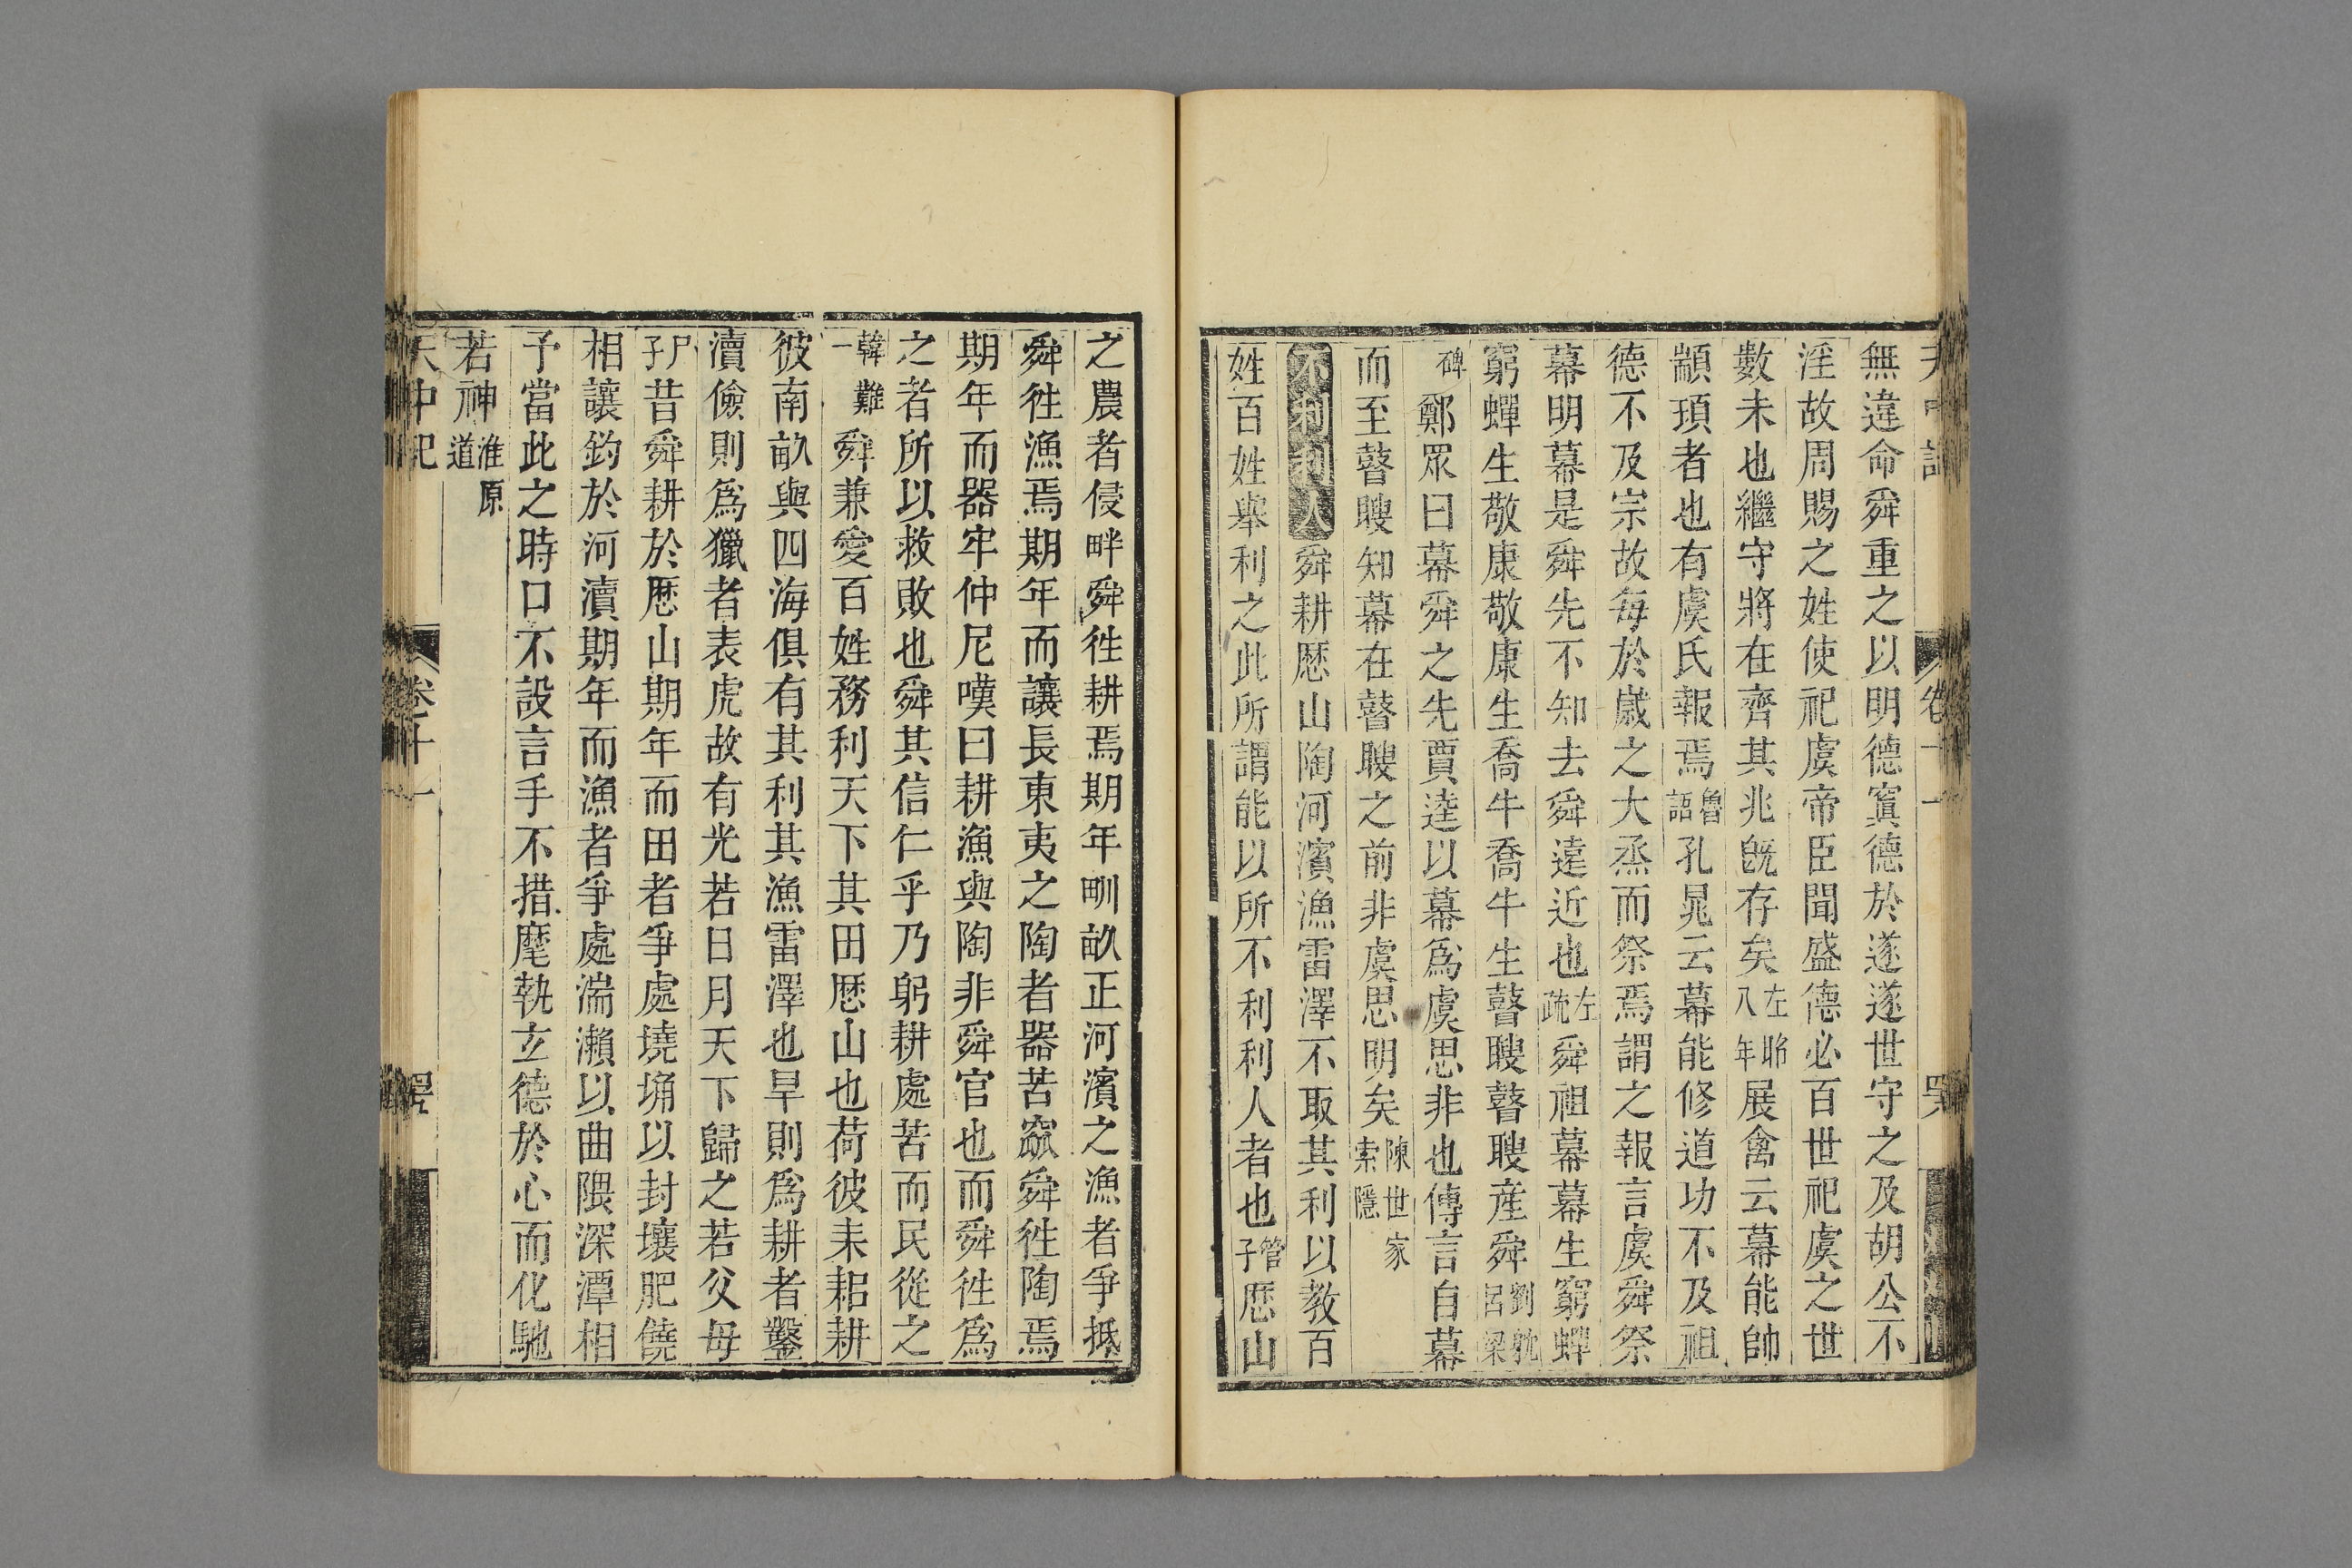 無違命舜重之以明德寘德於遂遂世守之及胡公不
淫故周賜之姓使祀虞帝臣聞盛德必百世祀虞之世
數未也繼守將在齊其兆旣存矣左昭八年展禽云幕能帥
顓頊者也有虞氏報焉魯語孔晁云幕能修道功不及祖
德不及宗故每於歲之大烝而祭焉謂之報言虞舜祭
幕明幕是舜先不知去舜遠近也左疏舜祖幕幕生窮蟬
窮蟬生敬康敬康生喬牛喬牛生瞽瞍瞽瞍產舜劉耽呂梁
碑鄭眾曰幕舜之先賈逵以幕爲虞思非也傳言自幕
而至瞽瞍知幕在瞽瞍之前非虞思明矣陳世家索隱
不利利人舜耕歷山陶河濱漁雷澤不取其利以教百
姓百姓舉利之此所謂能以所不利利人者也管子歷山
之農者侵畔舜徃耕焉期年甽畝正河濱之漁者爭抵
舜徃漁焉期年而讓長東夷之陶者器苦窳舜徃陶焉
期年而器牢仲尼嘆曰耕漁與陶非舜官也而舜徃爲
之者所以救敗也舜其信仁乎乃躬耕處苦而民從之
韓難一舜兼愛百姓務利天下其田歷山也荷彼耒耜耕
彼南畝與四海俱有其利其漁雷澤也旱則爲耕者鑿
瀆儉則爲獵者表虎故有光若日月天下歸之若父母
尸子昔舜耕於歷山期年而田者爭處墝埆以封壤肥饒
相讓釣於河瀆期年而漁者爭處湍瀨以曲隈深潭相
予當此之時口不設言手不措麾執玄德於心而化馳
若神淮原道
天中記 卷十一